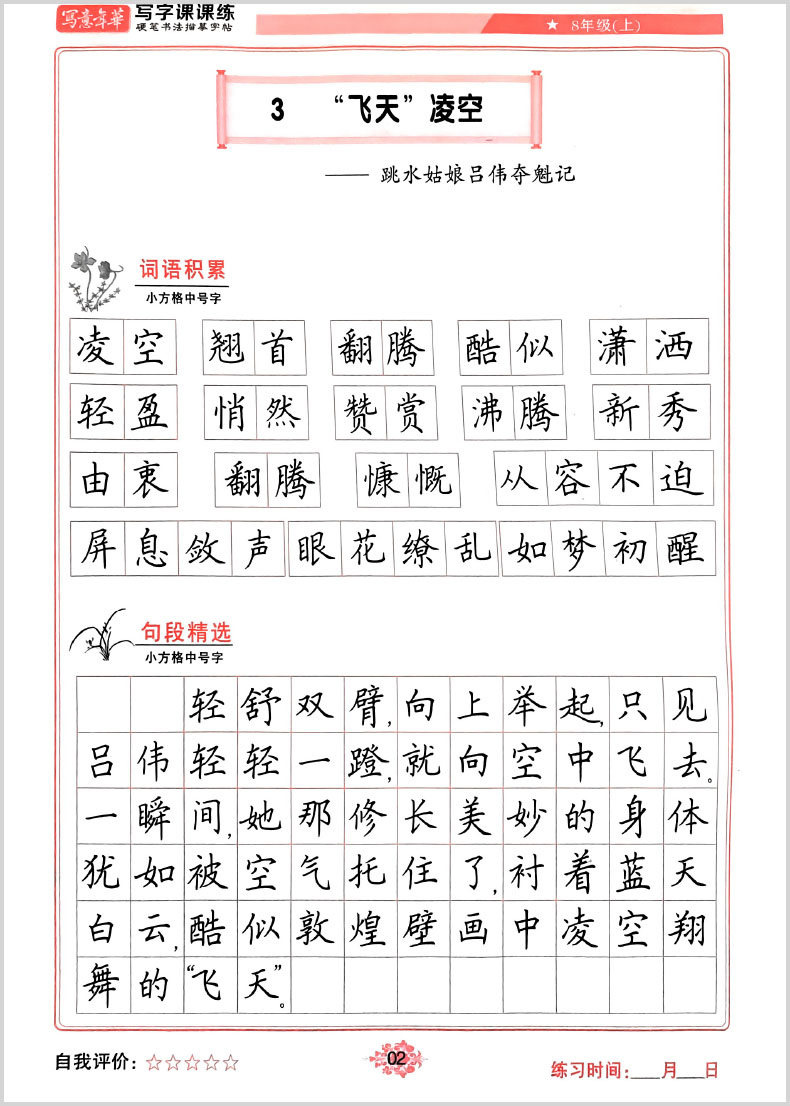 写意年華 写字课课练
硬笔书法描摹字帖
★ 8年级(上)
3 “飞天”凌空
—— 跳水姑娘吕伟夺魁记
词语积累
小方格中号字
凌空 翘首 翻腾 酷似 潇洒
轻盈 悄然 赞赏 沸腾 新秀
由衷 翻腾 慷慨 从容不迫
屏息敛声 眼花缭乱 如梦初醒
句段精选
小方格中号字
轻舒双臂,向上举起,只见
吕伟轻轻一蹬,就向空中飞去。
一瞬间,她那修长美妙的身体
犹如被空气托住了,衬着蓝天
白云,酷似敦煌壁画中凌空翔
舞的“飞天”。
自我评价:☆☆☆☆☆
02
练习时间:___月___日